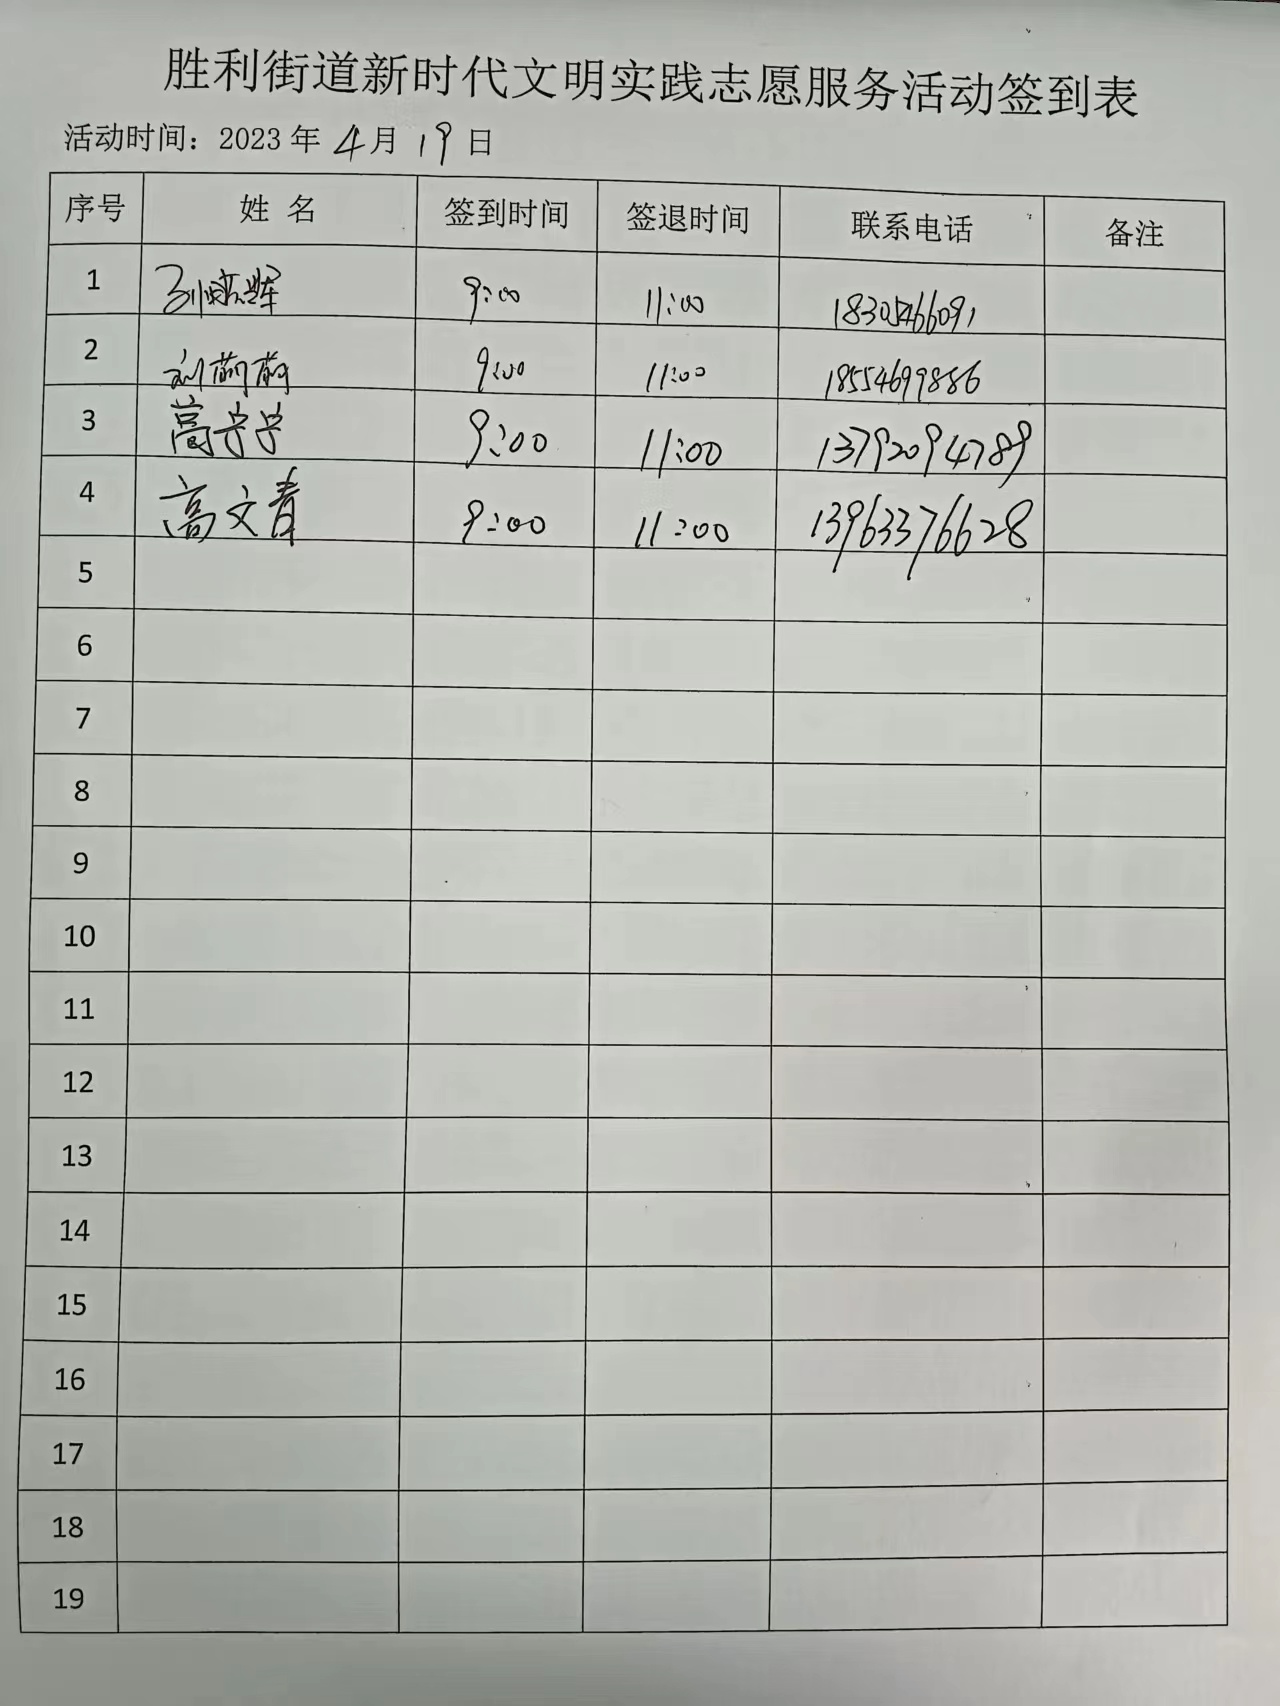 胜利街道新时代文明实践志愿服务活动签到表
活动时间：2023 年 4 月 19 日
序号 姓 名 签到时间 签退时间 联系电话 备注
1 9:00 11:00 18305466091
2 刘蔚蔚 9:00 11:00 18554699886
3 高宁宁 9:00 11:00 13792094789
4 高文青 9:00 11:00 13963376628
5
6
7
8
9
10
11
12
13
14
15
16
17
18
19